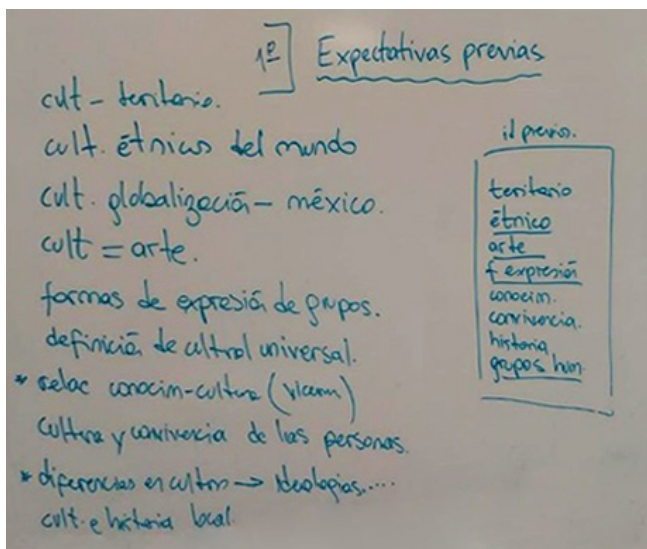 1º] Expectativas previas
cult - territorio.
cult. étnicas del mundo
cult. globalización - méxico.
cult = arte.
formas de expresión de grupos.
definición de cultural universal.
* relac conocim-cultura (
Cultura y convivencia de las personas.
* diferencias en cultura → Ideologías.....
cult. e historia local.
id previas.
territorio
étnico
arte
f expresión
conocim.
convivencia.
historia
grupos hum.